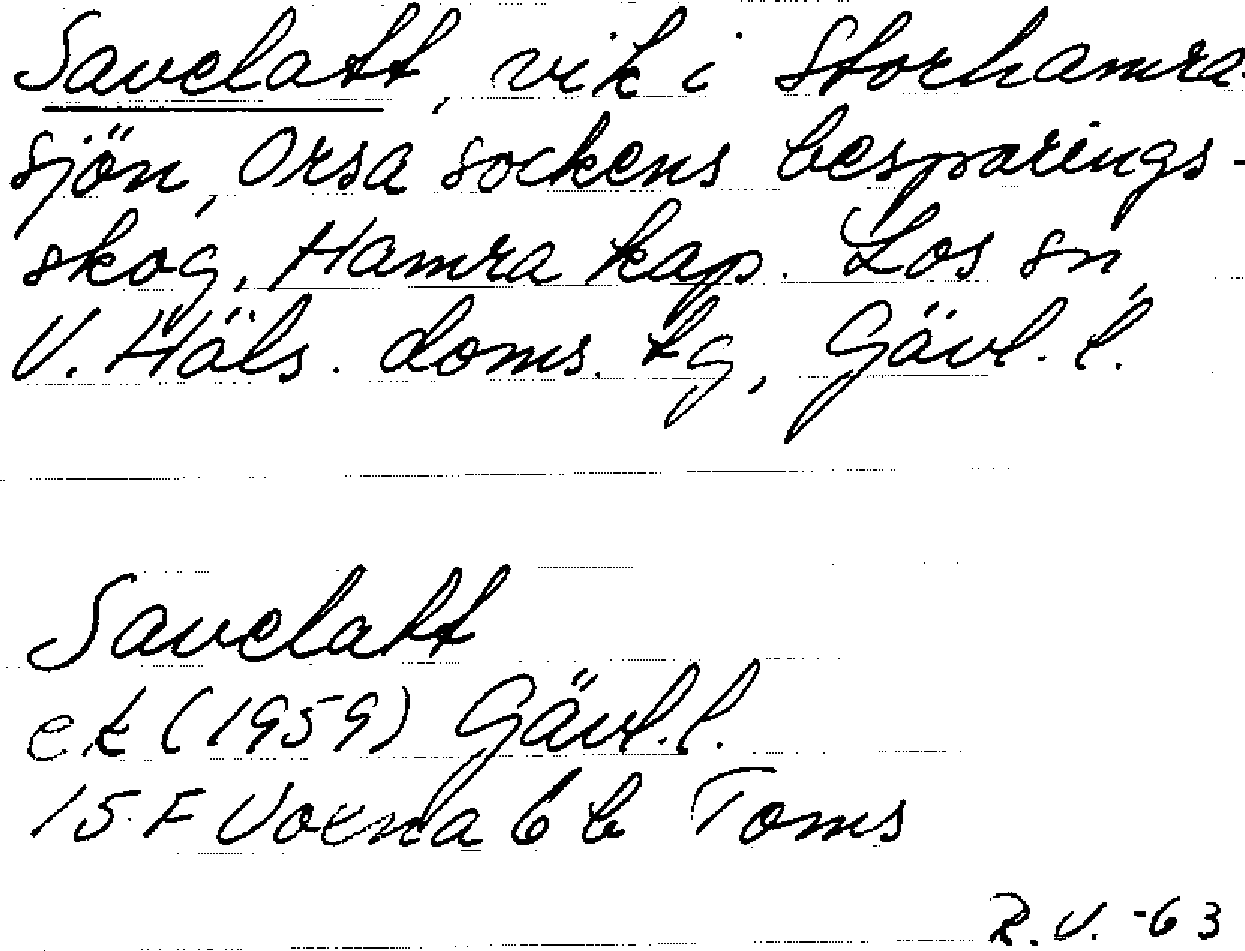 Savelatt, vik i Storhamra-
sjön, Orsa sockens besparings-
skog, Hamra kap. Los sn,
V. Häls. doms. tg, Gävl. l.
Savelatt
ek (1959) Gävl. l.
15 F Voxna 6 b Toms
R. V. -63